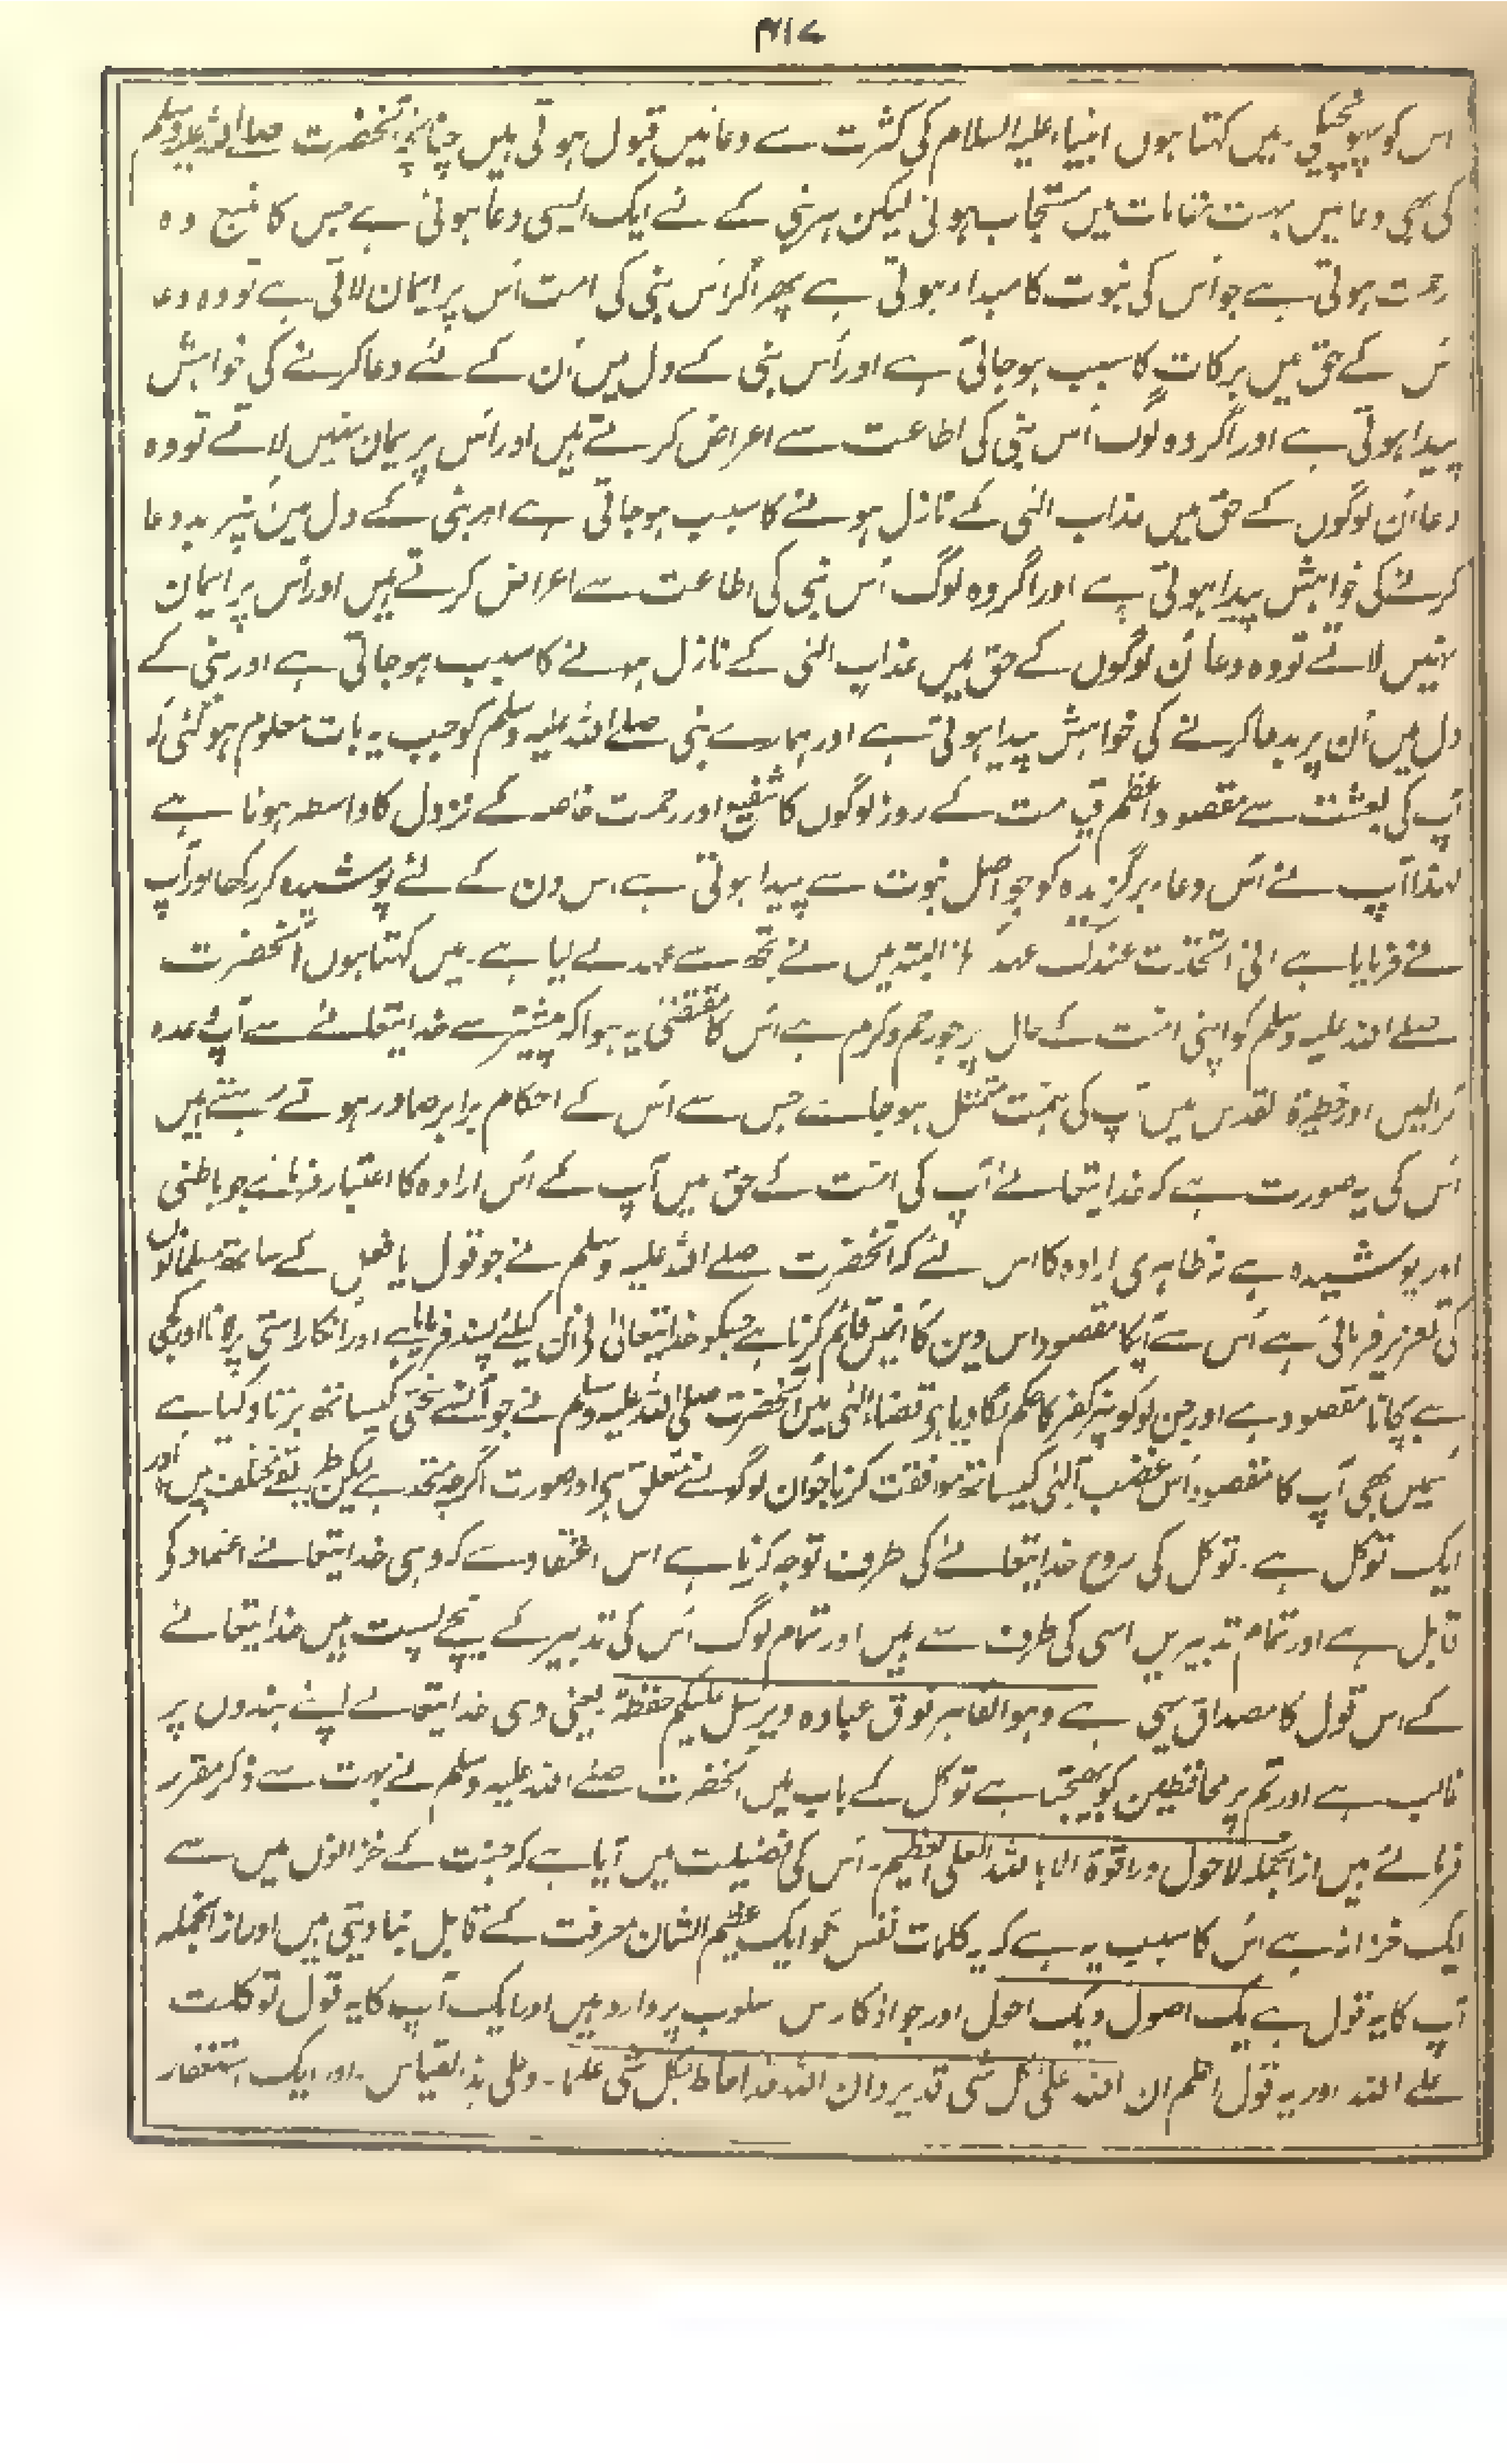 ۴۱۷
اس کو پہونچیگی۔ میں کہتا ہوں انبیاء علیہ السلام کی کثرت سے دعائیں قبول ہوتی ہیں چنانچہ آنحضرت صلے اللہ علیہ وسلم
کی بھی دعائیں بہت مقامات میں مستجاب ہوئی لیکن ہر نبی کے لئے ایک ایسی دعا ہوتی ہے جس کا منبع وہ
رحمت ہوتی ہے جو اُس کی نبوت کا مبداء ہوتی ہے پھر اگر اُس نبی کی امت اُس پر ایمان لاتی ہے تو وہ دعا
اس کے حق میں برکات کا سبب ہو جاتی ہے اور اُس نبی کے دل میں اُن کے لئے دعا کرنے کی خواہش
پیدا ہوتی ہے اور اگر وہ لوگ اُس نبی کی اطاعت سے اعراض کرتے ہیں اور اُس پر ایمان نہیں لاتے تو وہ
دعا اُن لوگوں کے حق میں عذاب الٰہی کے نازل ہونے کا سبب ہو جاتی ہے اور نبی کے دل میں اُنپر بددعا
کرنے کی خواہش پیدا ہوتی ہے اور اگر وہ لوگ اُس نبی کی اطاعت سے اعراض کرتے ہیں اور اُس پر ایمان
نہیں لاتے تو وہ دعا اُن لوگوں کے حق میں عذاب الٰہی کے نازل ہونے کا سبب ہو جاتی ہے اور نبی کے
دل میں اُن پر بددعا کرنے کی خواہش پیدا ہوتی ہے اور ہمارے نبی صلے اللہ علیہ وسلم کو جب یہ بات معلوم ہو گئی کہ
آپ کی بعثت سے مقصود اعظم قیامت کے روز لوگوں کا شفیع اور رحمت خاصہ کے نزول کا واسطہ ہونا ہے
لہذا آپ نے اُس دعاء برگزیدہ کو جو اصل نبوت سے پیدا ہوتی ہے اس دن کے لئے پوشیدہ کر رکھا اور آپ
نے فرمایا ہے انی اتخذت عندک عہدا البتہ میں نے تجھ سے عہد لے لیا ہے۔ میں کہتا ہوں آنحضرت
صلے اللہ علیہ وسلم کو اپنی امت کے حال پر جو رحم و کرم ہے اُس کا مقتضیٰ یہ ہوا کہ پیشتر سے خدایتعالےٰ سے آپ عہدہ
کرالیں اور حظیرۃ القدس میں آپ کی ہمت متمثل ہو جاے جس سے اُس کے احکام برابر صادر ہوتے رہتے ہیں
اُس کی یہ صورت ہے کہ خدایتعالےٰ آپ کی امت کے حق میں آپ کے اُس ارادہ کا اعتبار فرمائے جو باطنی
اور پوشیدہ ہے نہ ظاہری ارادہ کا اس لئے کہ آنحضرت صلے اللہ علیہ وسلم نے جو قول یا فعل کے ساتھ مسلمانوں
کی تعزیر فرمائی ہے اُس سے آپکا مقصود اس دین کا انہیں قائم کرنا ہے جسکو خدایتعالیٰ نے اُن کیلئے پسند فرمایا ہے اور اُنکا راستی پر لانا اور کجی
سے بچانا مقصود ہے اور جن لوگونپر کفر کا حکم لگا دیا ہے قضاء الٰہی میں آنحضرت صلی اللہ علیہ وسلم نے جو اُنسے سختی کیساتھ برتاؤ کیا ہے
اُسمیں بھی آپ کا مقصود اُس غضب آلٰہی کیساتھ موافقت کرنا جو اُن لوگوں سے متعلق ہے اور صورت اگرچہ متحد ہے لیکن طریقے مختلف ہیں اور
ایک توکل ہے۔ توکل کی روح خدایتعالےٰ کی طرف توجہ کرنا ہے اس اعتقاد سے کہ وہی خدایتعالےٰ اعتماد کے
قابل ہے اور تمام تدبیریں اسی کی طرف سے ہیں اور تمام لوگ اُس کی تدبیر کے نیچے پست ہیں خدایتعالےٰ
کے اس قول کا مصداق یہی ہے وہو القاہر فوق عبادہ ویرسل علیکم حفظۃ یعنی وہی خدایتعالےٰ اپنے بندوں پر
غالب ہے اور تم پر محافظین کو بھیجتا ہے توکل کے باب میں آنحضرت صلے اللہ علیہ وسلم نے بہت سے ذکر مقرر
فرمائے ہیں ازانجملہ لاحول ولا قوۃ الا باللہ العلی العظیم۔ اُس کی فضیلت میں آیا ہے کہ جنت کے خزانوں میں سے
ایک خزانہ ہے اُس کا سبب یہ ہے کہ یہ کلمات نفس کو ایک عظیم الشان معرفت کے قابل بنا دیتی ہیں اور ازانجملہ
آپ کا یہ قول ہے بک اصول وبک احول اور جو اذکار اس اسلوب پر وارد ہیں اور ایک آپ کا یہ قول توکلت
علے اللہ اور یہ قول اعلم ان اللہ علیٰ کل شی قدیر وان اللہ قد احاط بکل شی علما۔ وعلی ہذا القیاس۔ اور ایک استغفار